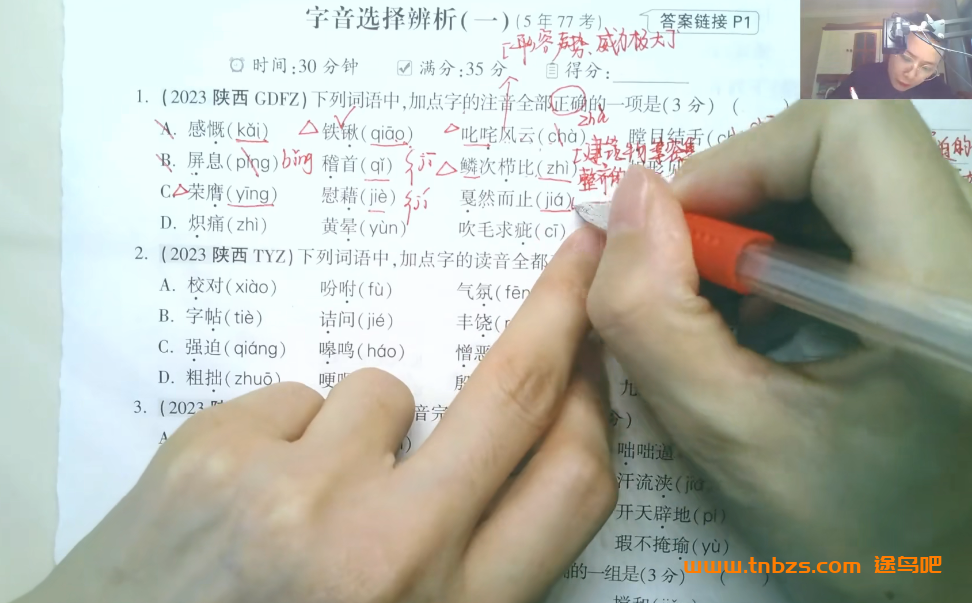 字音选择辨析(一)(5年77考) 答案链接 P1
形容声势、威力极大
时间:30分钟 满分:35分 得分:
1. (2023 陕西 GDFZ)下列词语中,加点字的注音全部正确的一项是(3分) (
zhà
A. 感慨(kǎi) 铁锹(qiāo) 叱咤风云(chà) 瞠目结舌(ch
B. 屏息(pǐng) bǐng 稽首(qǐ) jī 鳞次栉比(zhì)
C. 荣膺(yīng) 慰藉(jiè) jí 戛然而止(jiá)
D. 炽痛(zhì) 黄晕(yùn) 吹毛求疵(cī)
2. (2023 陕西 TYZ)下列词语中,加点字的读音全都
A. 校对(xiào) 吩咐(fù) 气氛(fēn
B. 字帖(tiè) 诘问(jié) 丰饶(r
C. 强迫(qiáng) 嗥鸣(háo) 憎恶
D. 粗拙(zhuō) 哽
九
3. (2023 陕 音完 分)
咄咄逼
汗流浃(jiá
开天辟地(pì)
瑕不掩瑜(yù)
的一组是(3分) ( )
www.tnbzs.com 途鸟吧